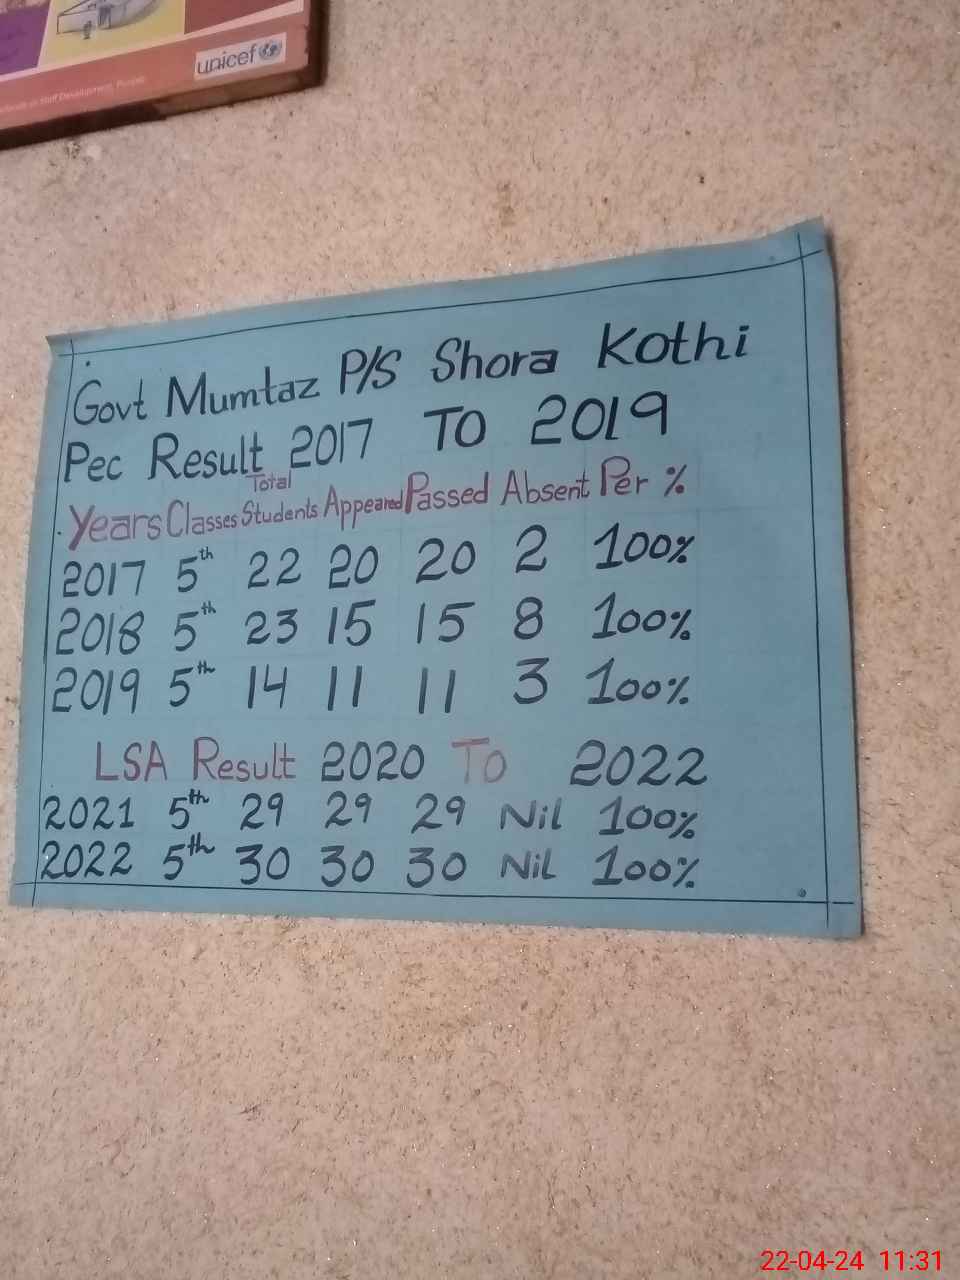 unicef
Govt Mumtaz P/S Shora Kothi
Pec Result 2017 To 2019
Years Classes Total Students Appeared Passed Absent Per %
2017 5th 22 20 20 2 100%
2018 5th 23 15 15 8 100%
2019 5th 14 11 11 3 100%
LSA Result 2020 To 2022
2021 5th 29 29 29 Nil 100%
2022 5th 30 30 30 Nil 100%
22-04-24 11:31